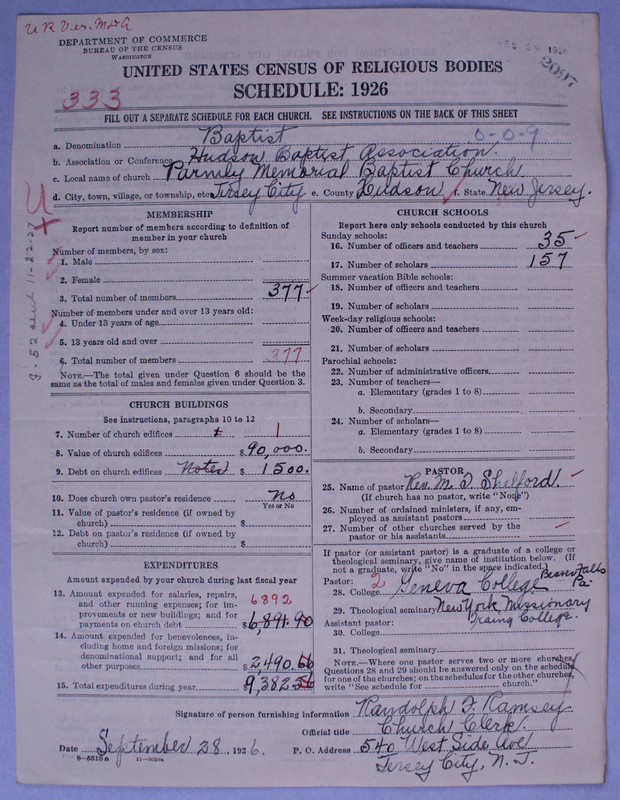 DEPARTMENT OF COMMERCE
BUREAU OF THE CENSUS
WASHINGTON
1926
2097
UNITED STATES CENSUS OF RELIGIOUS BODIES
333
SCHEDULE: 1926
FILL OUT A SEPARATE SCHEDULE FOR EACH CHURCH. SEE INSTRUCTIONS ON THE BACK OF THIS SHEET
a. Denomination Baptist 0-0-9
b. Association or Conference Hudson Baptist Association.
c. Local name of church Parmly Memorial Baptist Church.
d. City, town, village, or township, etc. Jersey City e. County Hudson f. State New Jersey.
MEMBERSHIP
Report number of members according to definition of
member in your church
Number of members, by sex:
1. Male
2. Female
3. Total number of members 377
Number of members under and over 13 years old:
4. Under 13 years of age
5. 13 years old and over
6. Total number of members 377
NOTE.—The total given under Question 6 should be the
same as the total of males and females given under Question 3.
CHURCH BUILDINGS
See instructions, paragraphs 10 to 12
7. Number of church edifices 1 1
8. Value of church edifices $ 90,000.
9. Debt on church edifices Notes $ 1500.
10. Does church own pastor's residence No
Yes or No
11. Value of pastor's residence (if owned by
church) $
12. Debt on pastor's residence (if owned by
church) $
EXPENDITURES
Amount expended by your church during last fiscal year
13. Amount expended for salaries, repairs,
and other running expenses; for im-
provements or new buildings; and for
payments on church debt $ 6,891.90
6892
14. Amount expended for benevolences, in-
cluding home and foreign missions; for
denominational support; and for all
other purposes $ 2,490.66
15. Total expenditures during year $ 9,382.56
CHURCH SCHOOLS
Report here only schools conducted by this church
Sunday schools:
16. Number of officers and teachers 35
17. Number of scholars 157
Summer vacation Bible schools:
18. Number of officers and teachers
19. Number of scholars
Week-day religious schools:
20. Number of officers and teachers
21. Number of scholars
Parochial schools:
22. Number of administrative officers
23. Number of teachers—
a. Elementary (grades 1 to 8)
b. Secondary
24. Number of scholars—
a. Elementary (grades 1 to 8)
b. Secondary
PASTOR
25. Name of pastor Rev. M. D. Shelford.
(If church has no pastor, write "None")
26. Number of ordained ministers, if any, em-
ployed as assistant pastors
27. Number of other churches served by the
pastor or his assistants
If pastor (or assistant pastor) is a graduate of a college or
theological seminary, give name of institution below. (If
not a graduate, write "No" in the space indicated.)
Pastor: 2
28. College Geneva College Beaver Falls Pa.
29. Theological seminary New York Missionary
Traing College.
Assistant pastor:
30. College
31. Theological seminary
NOTE.—Where one pastor serves two or more churches,
Questions 28 and 29 should be answered only on the schedule
for one of the churches; on the schedules for the other churches,
write "See schedule for church."
Signature of person furnishing information Randolph F. Ramsey
Official title Church Clerk.
Date September 28, 1926. P. O. Address 540 West Side Ave
Jersey City, N. J.
8-5518a 11-9024a